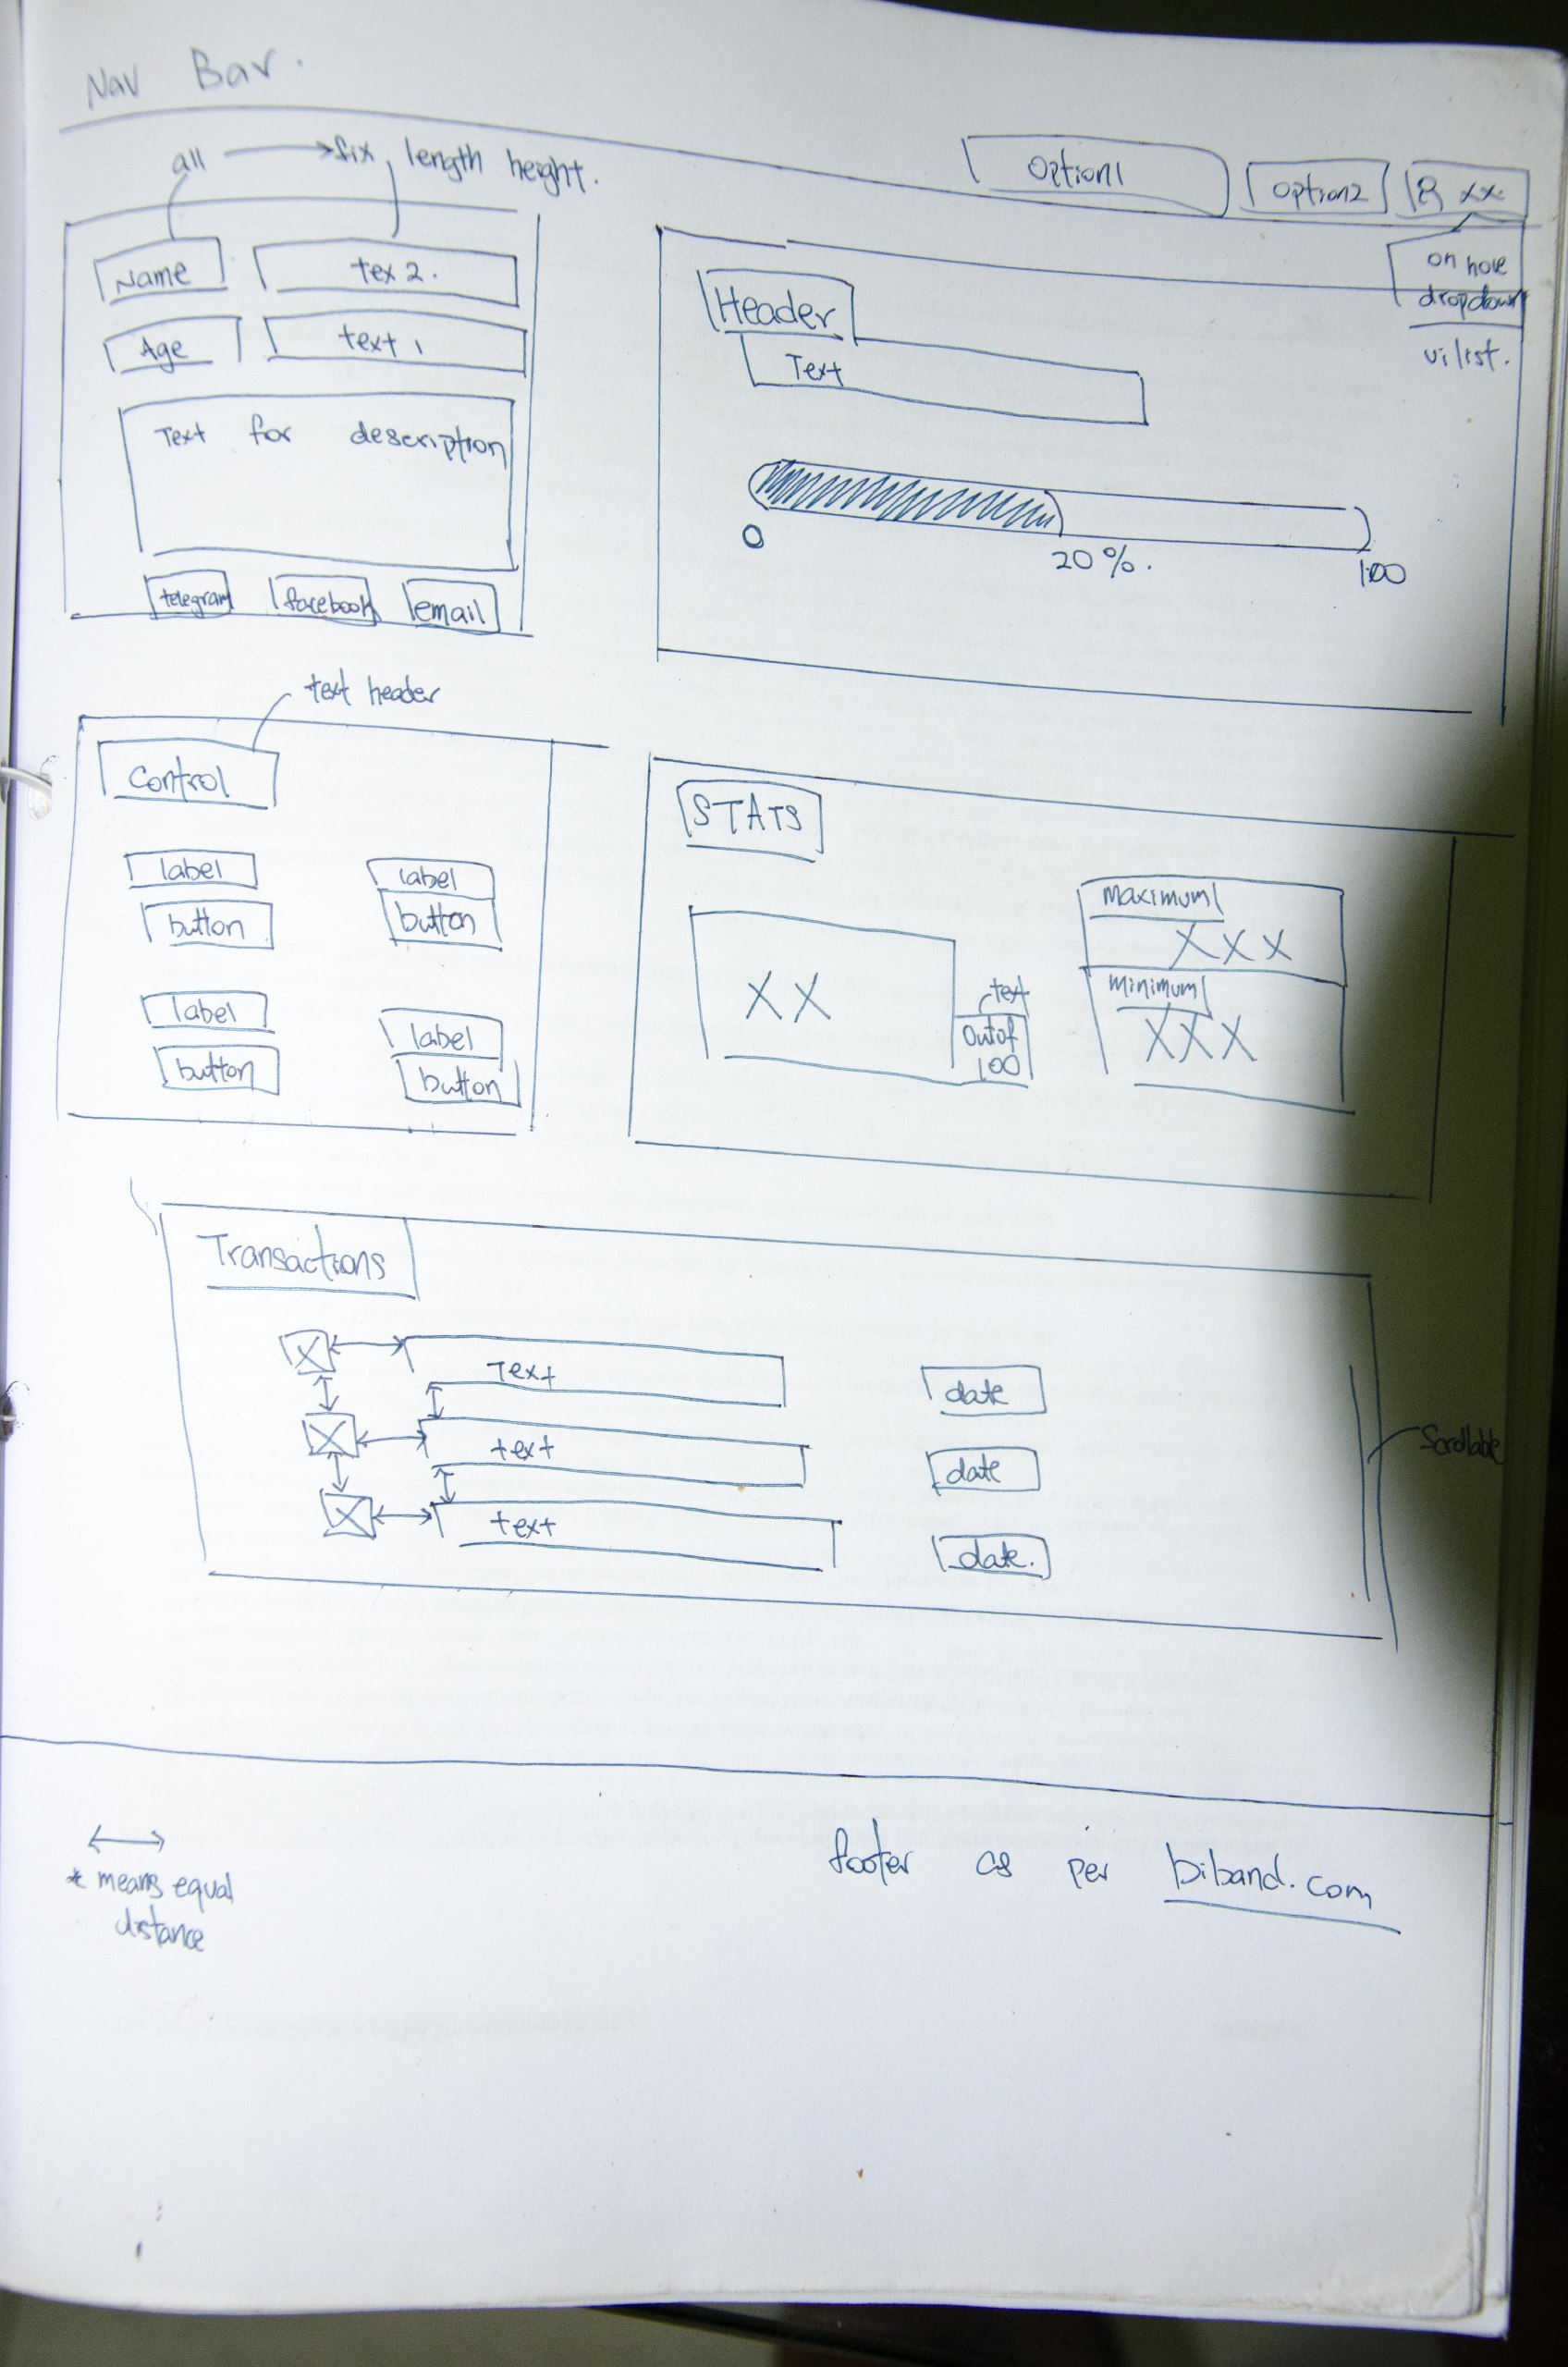 Nav Bar.
all fix length height.
Option1
option2
xx
on hove
dropdown
ui list.
Name
tex 2.
Age
text 1
Text for description
telegram
facebook
email
Header
Text
0
20%.
100
text header
Control
label
label
button
button
label
label
button
button
STATS
XX
text
Out of
100
Maximum
XXX
Minimum
XXX
Transactions
Text
date
text
date
text
date.
Scrollable
* means equal
distance
footer as per biband.com